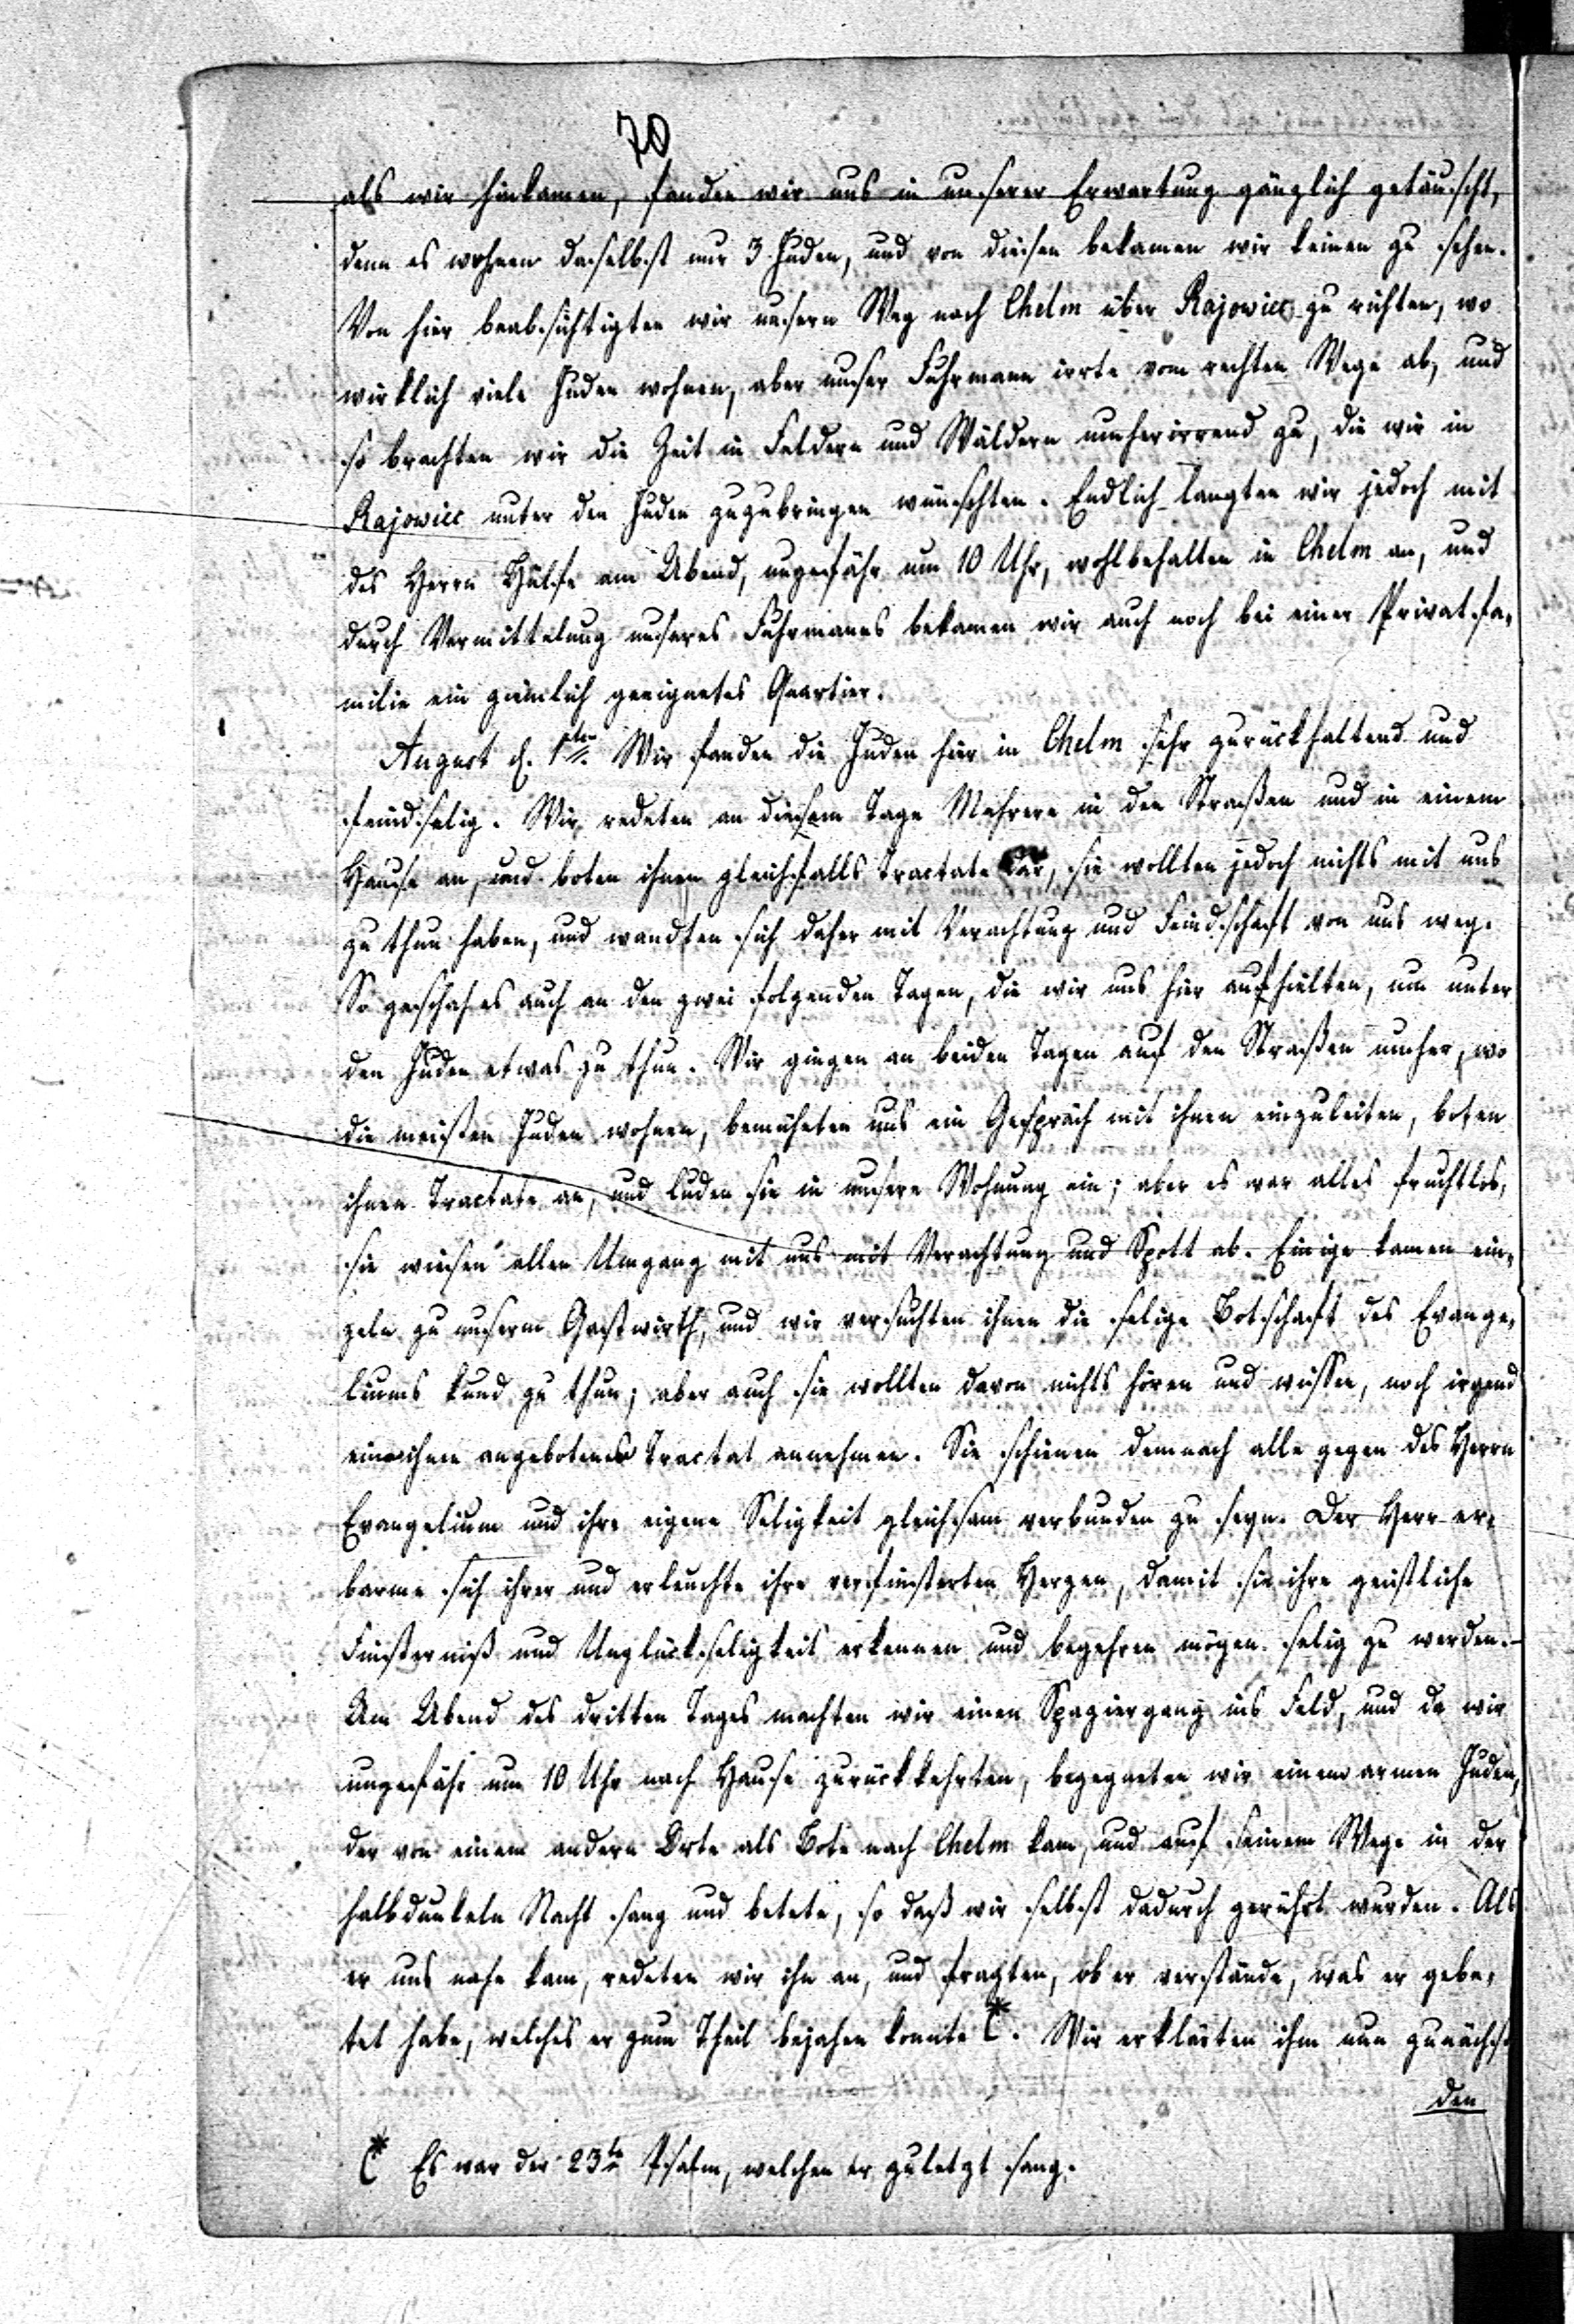 70
als wir hinkamen, fanden wir uns in unserer Erwartung gänzlich getäuscht,
denn es wohnen daselbst nur 3 Juden, und von diesen bekamen wir keinen zu sehen.
Von hier beabsichtigten wir unsern Weg nach Chelm über Rajowiec zu richten, wo
wirklich viele Juden wohnen, aber unser Fuhrmann irrte vom rechten Wege ab, und
so brachten wir die Zeit in Feldern und Wäldern umherirrend zu, die wir in
Rajowiec unter den Juden zuzubringen wünschten. Endlich langten wir jedoch mit
des Herrn Hülfe am Abend, ungefähr um 10 Uhr, wohlbehalten in Chelm an, und
durch Vermittelung unseres Fuhrmanns bekamen wir auch noch bei einer Privatfa-
milie ein ziemlich geeignetes Quartier.
August d. 1ten Wir fanden die Juden hier in Chelm sehr zurückhaltend und
feindselig. Wir redeten an diesem Tage Mehrere in den Straßen und in einem
Hause an, und boten ihnen gleichfalls Tractate dar, sie wollten jedoch nichts mit uns
zu thun haben, und wandten sich daher mit Verachtung und Feindschaft von uns weg.
So geschah es auch an den zwei folgenden Tagen, die wir uns hier aufhielten, um unter
den Juden etwas zu thun. Wir gingen an beiden Tagen auf den Straßen umher, wo
die meisten Juden wohnen, bemühten uns ein Gespräch mit ihnen einzuleiten, boten
ihnen Tractate an, und luden sie in unsere Wohnung ein; aber es war alles fruchtlos,
sie wiesen allen Umgang mit uns mit Verachtung und Spott ab. Einige kamen ein-
zeln zu unserm Gastwirth, und wir versuchten ihnen die selige Botschaft des Evange-
liums kund zu thun; aber auch sie wollten davon nichts hören und wissen, noch irgend
ein ihnen angebotenes Tractat annehmen. Sie schienen demnach alle gegen des Herrn
Evangelium und ihre eigene Seligkeit gleichsam verbunden zu seyn. Der Herr er-
barme sich ihrer und erleuchte ihre verfinsterten Herzen, damit sie ihre geistliche
Finsterniß und Unglückseligkeit erkennen und begehren mögen selig zu werden.
Am Abend des dritten Tages machten wir einen Spaziergang ins Feld, und da wir
ungefähr um 10 Uhr nach Hause zurückkehrten, begegneten wir einem armen Juden,
der von einem andern Orte als Bote nach Chelm kam, und auf seinem Wege in der
halbdunkeln Nacht sang und betete, so daß wir selbst dadurch gerührt wurden. Als
er uns nahe kam, redeten wir ihn an, und fragten, ob er verstände, was er gebe-
tet habe, welches er zum Theil bejahen konnte (*. Wir erklärten ihm nun zunächst
den
(* Es war der 23te Psalm, welchen er zuletzt sang.